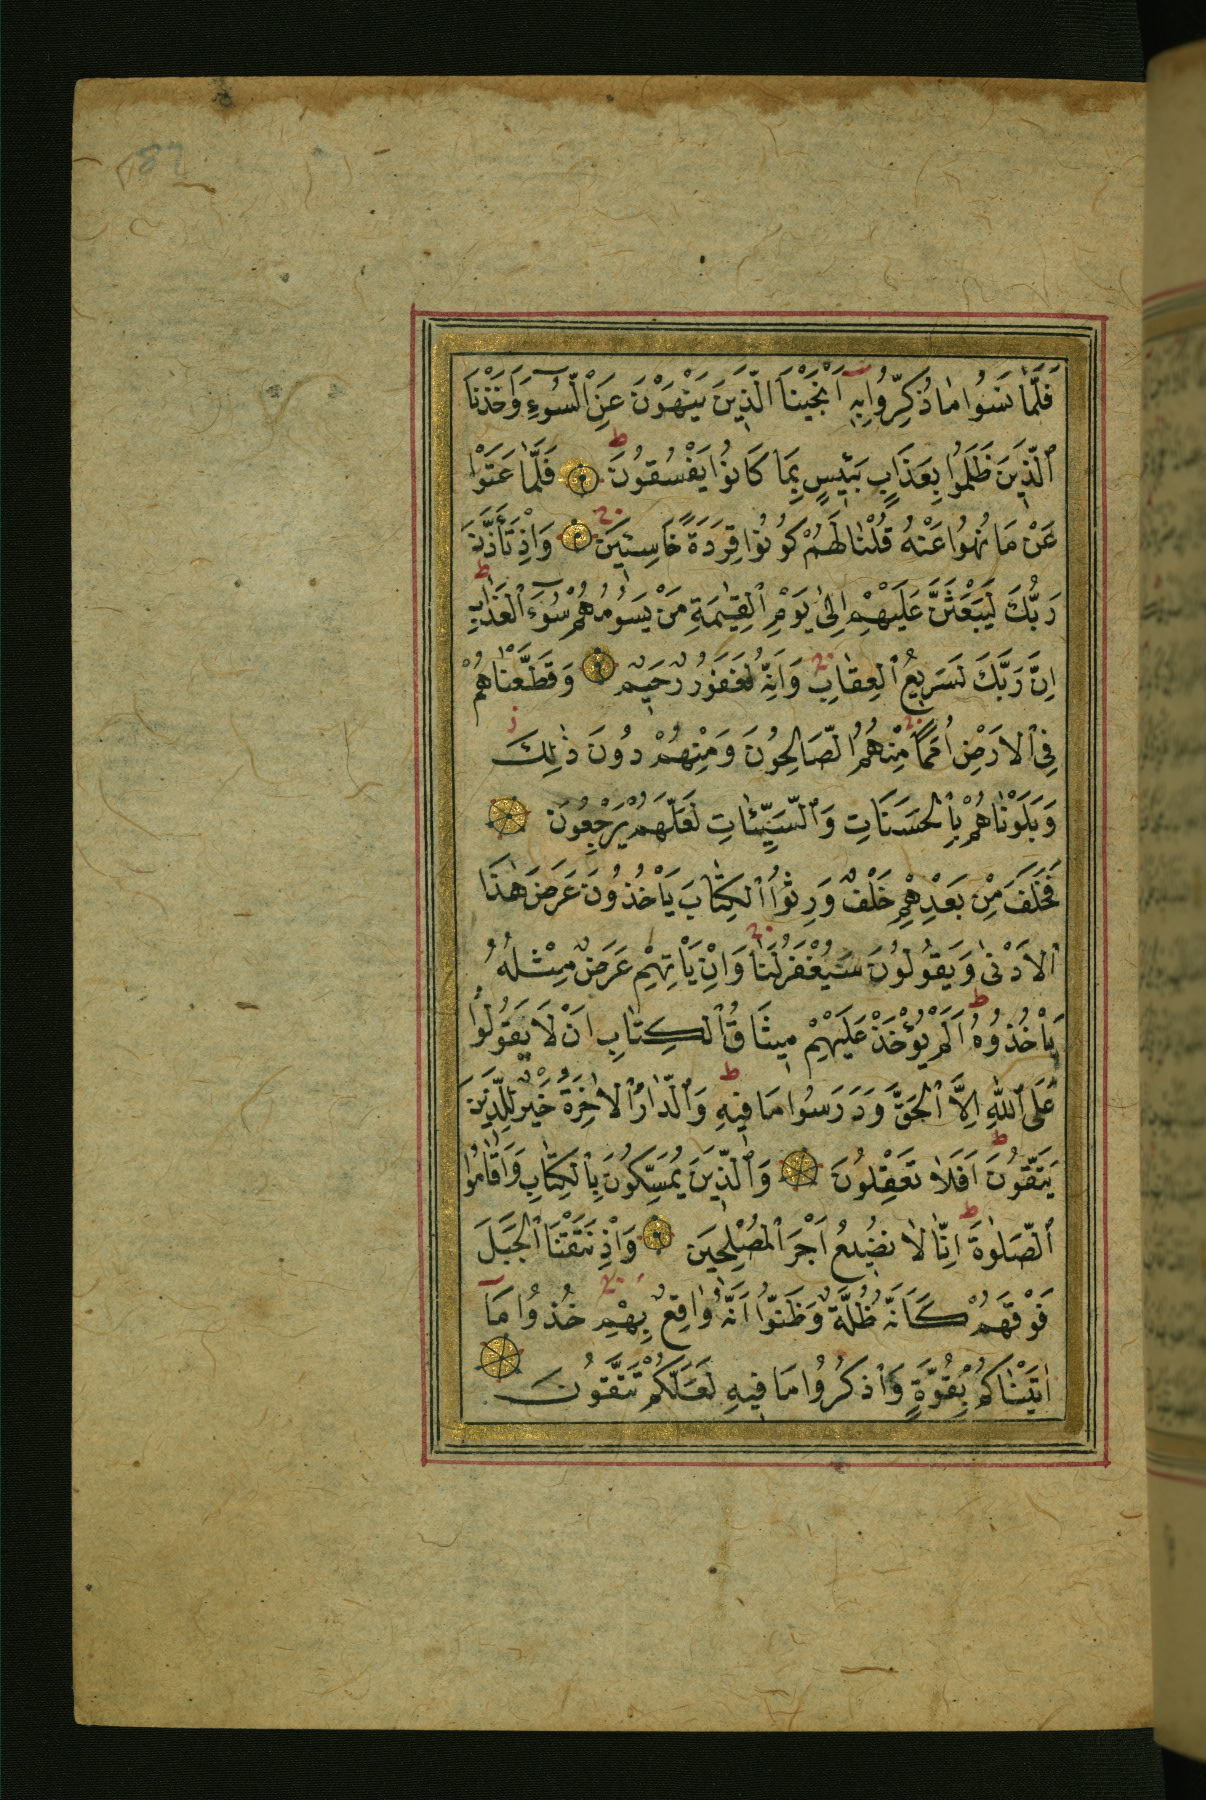 فَلَمَّا نَسُوا مَا ذُكِّرُوا بِهٖٓ اَنْجَيْنَا الَّذٖينَ يَنْهَوْنَ عَنِ السُّٓوءِ وَاَخَذْنَا
الَّذٖينَ ظَلَمُوا بِعَذَابٍ بَـٖٔيسٍ بِمَا كَانُوا يَفْسُقُونَ فَلَمَّا عَتَوْا
عَنْ مَا نُهُوا عَنْهُ قُلْنَا لَهُمْ كُونُوا قِرَدَةً خَاسِـٖٔينَ وَاِذْ تَاَذَّنَ
رَبُّكَ لَيَبْعَثَنَّ عَلَيْهِمْ اِلٰى يَوْمِ الْقِيٰمَةِ مَنْ يَسُومُهُمْ سُٓوءَ الْعَذَابِ
اِنَّ رَبَّكَ لَسَرٖيعُ الْعِقَابِ وَاِنَّهُ لَغَفُورٌ رَحٖيمٌ وَقَطَّعْنَاهُمْ
فِي الْاَرْضِ اُمَمًا مِنْهُمُ الصَّالِحُونَ وَمِنْهُمْ دُونَ ذٰلِكَ
وَبَلَوْنَاهُمْ بِالْحَسَنَاتِ وَالسَّيِّـَٔاتِ لَعَلَّهُمْ يَرْجِعُونَ
فَخَلَفَ مِنْ بَعْدِهِمْ خَلْفٌ وَرِثُوا الْكِتَابَ يَاْخُذُونَ عَرَضَ هٰذَا
الْاَدْنٰى وَيَقُولُونَ سَيُغْفَرُ لَنَا وَاِنْ يَاْتِهِمْ عَرَضٌ مِثْلُهُ
يَاْخُذُوهُ اَلَمْ يُؤْخَذْ عَلَيْهِمْ مٖيثَاقُ الْكِتَابِ اَنْ لَا يَقُولُوا
عَلَى اللّٰهِ اِلَّا الْحَقَّ وَدَرَسُوا مَا فٖيهِ وَالدَّارُ الْاٰخِرَةُ خَيْرٌ لِلَّذٖينَ
يَتَّقُونَ اَفَلَا تَعْقِلُونَ وَالَّذٖينَ يُمَسِّكُونَ بِالْكِتَابِ وَاَقَامُوا
الصَّلٰوةَ اِنَّا لَا نُضٖيعُ اَجْرَ الْمُصْلِحٖينَ وَاِذْ نَتَقْنَا الْجَبَلَ
فَوْقَهُمْ كَاَنَّهُ ظُلَّةٌ وَظَنُّوا اَنَّهُ وَاقِعٌ بِهِمْ خُذُوا مَٓا
اٰتَيْنَاكُمْ بِقُوَّةٍ وَاذْكُرُوا مَا فٖيهِ لَعَلَّكُمْ تَتَّقُونَ